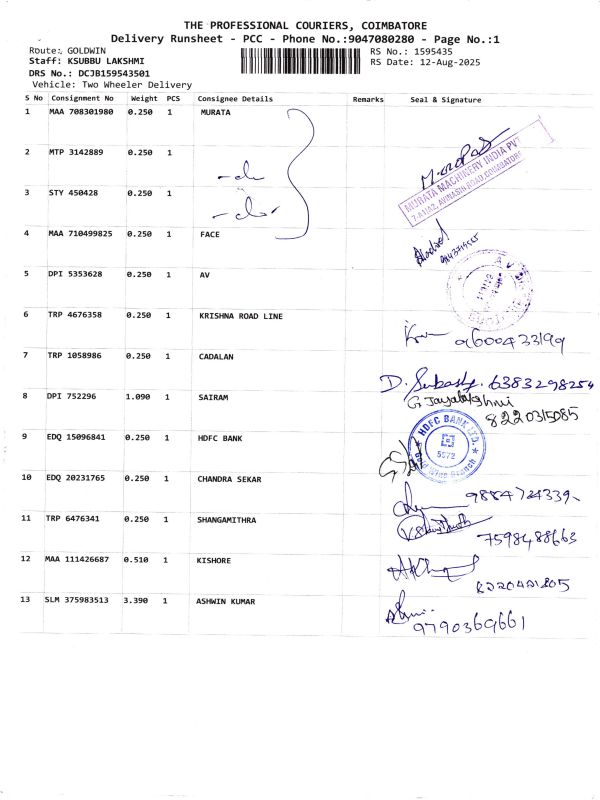 THE PROFESSIONAL COURIERS, COIMBATORE
Delivery Runsheet - PCC - Phone No.:9047080280 - Page No.:1
Route: GOLDWIN
RS No.: 1595435
Staff: KSUBBU LAKSHMI
RS Date: 12-Aug-2025
DRS No.: DCJB159543501
Vehicle: Two Wheeler Delivery
S No Consignment No Weight PCS Consignee Details Remarks Seal & Signature
1 MAA 708301980 0.250 1 MURATA
2 MTP 3142889 0.250 1 -do-
MURATA MACHINERY INDIA PVT
7-A1/A2, AVINASHI ROAD, COIMBATORE
3 STY 450428 0.250 1 -do-
4 MAA 710499825 0.250 1 FACE
5 DPI 5353628 0.250 1 AV
6 TRP 4676358 0.250 1 KRISHNA ROAD LINE
9600433199
7 TRP 1058986 0.250 1 CADALAN
D. Subash. 6383298254
8 DPI 752296 1.090 1 SAIRAM
G Jayalakshmi
8220315085
9 EDQ 15096841 0.250 1 HDFC BANK
HDFC BANK LTD.
5572
10 EDQ 20231765 0.250 1 CHANDRA SEKAR
9884724339
11 TRP 6476341 0.250 1 SHANGAMITHRA
7598488663
12 MAA 111426687 0.510 1 KISHORE
13 SLM 375983513 3.390 1 ASHWIN KUMAR
9790369661